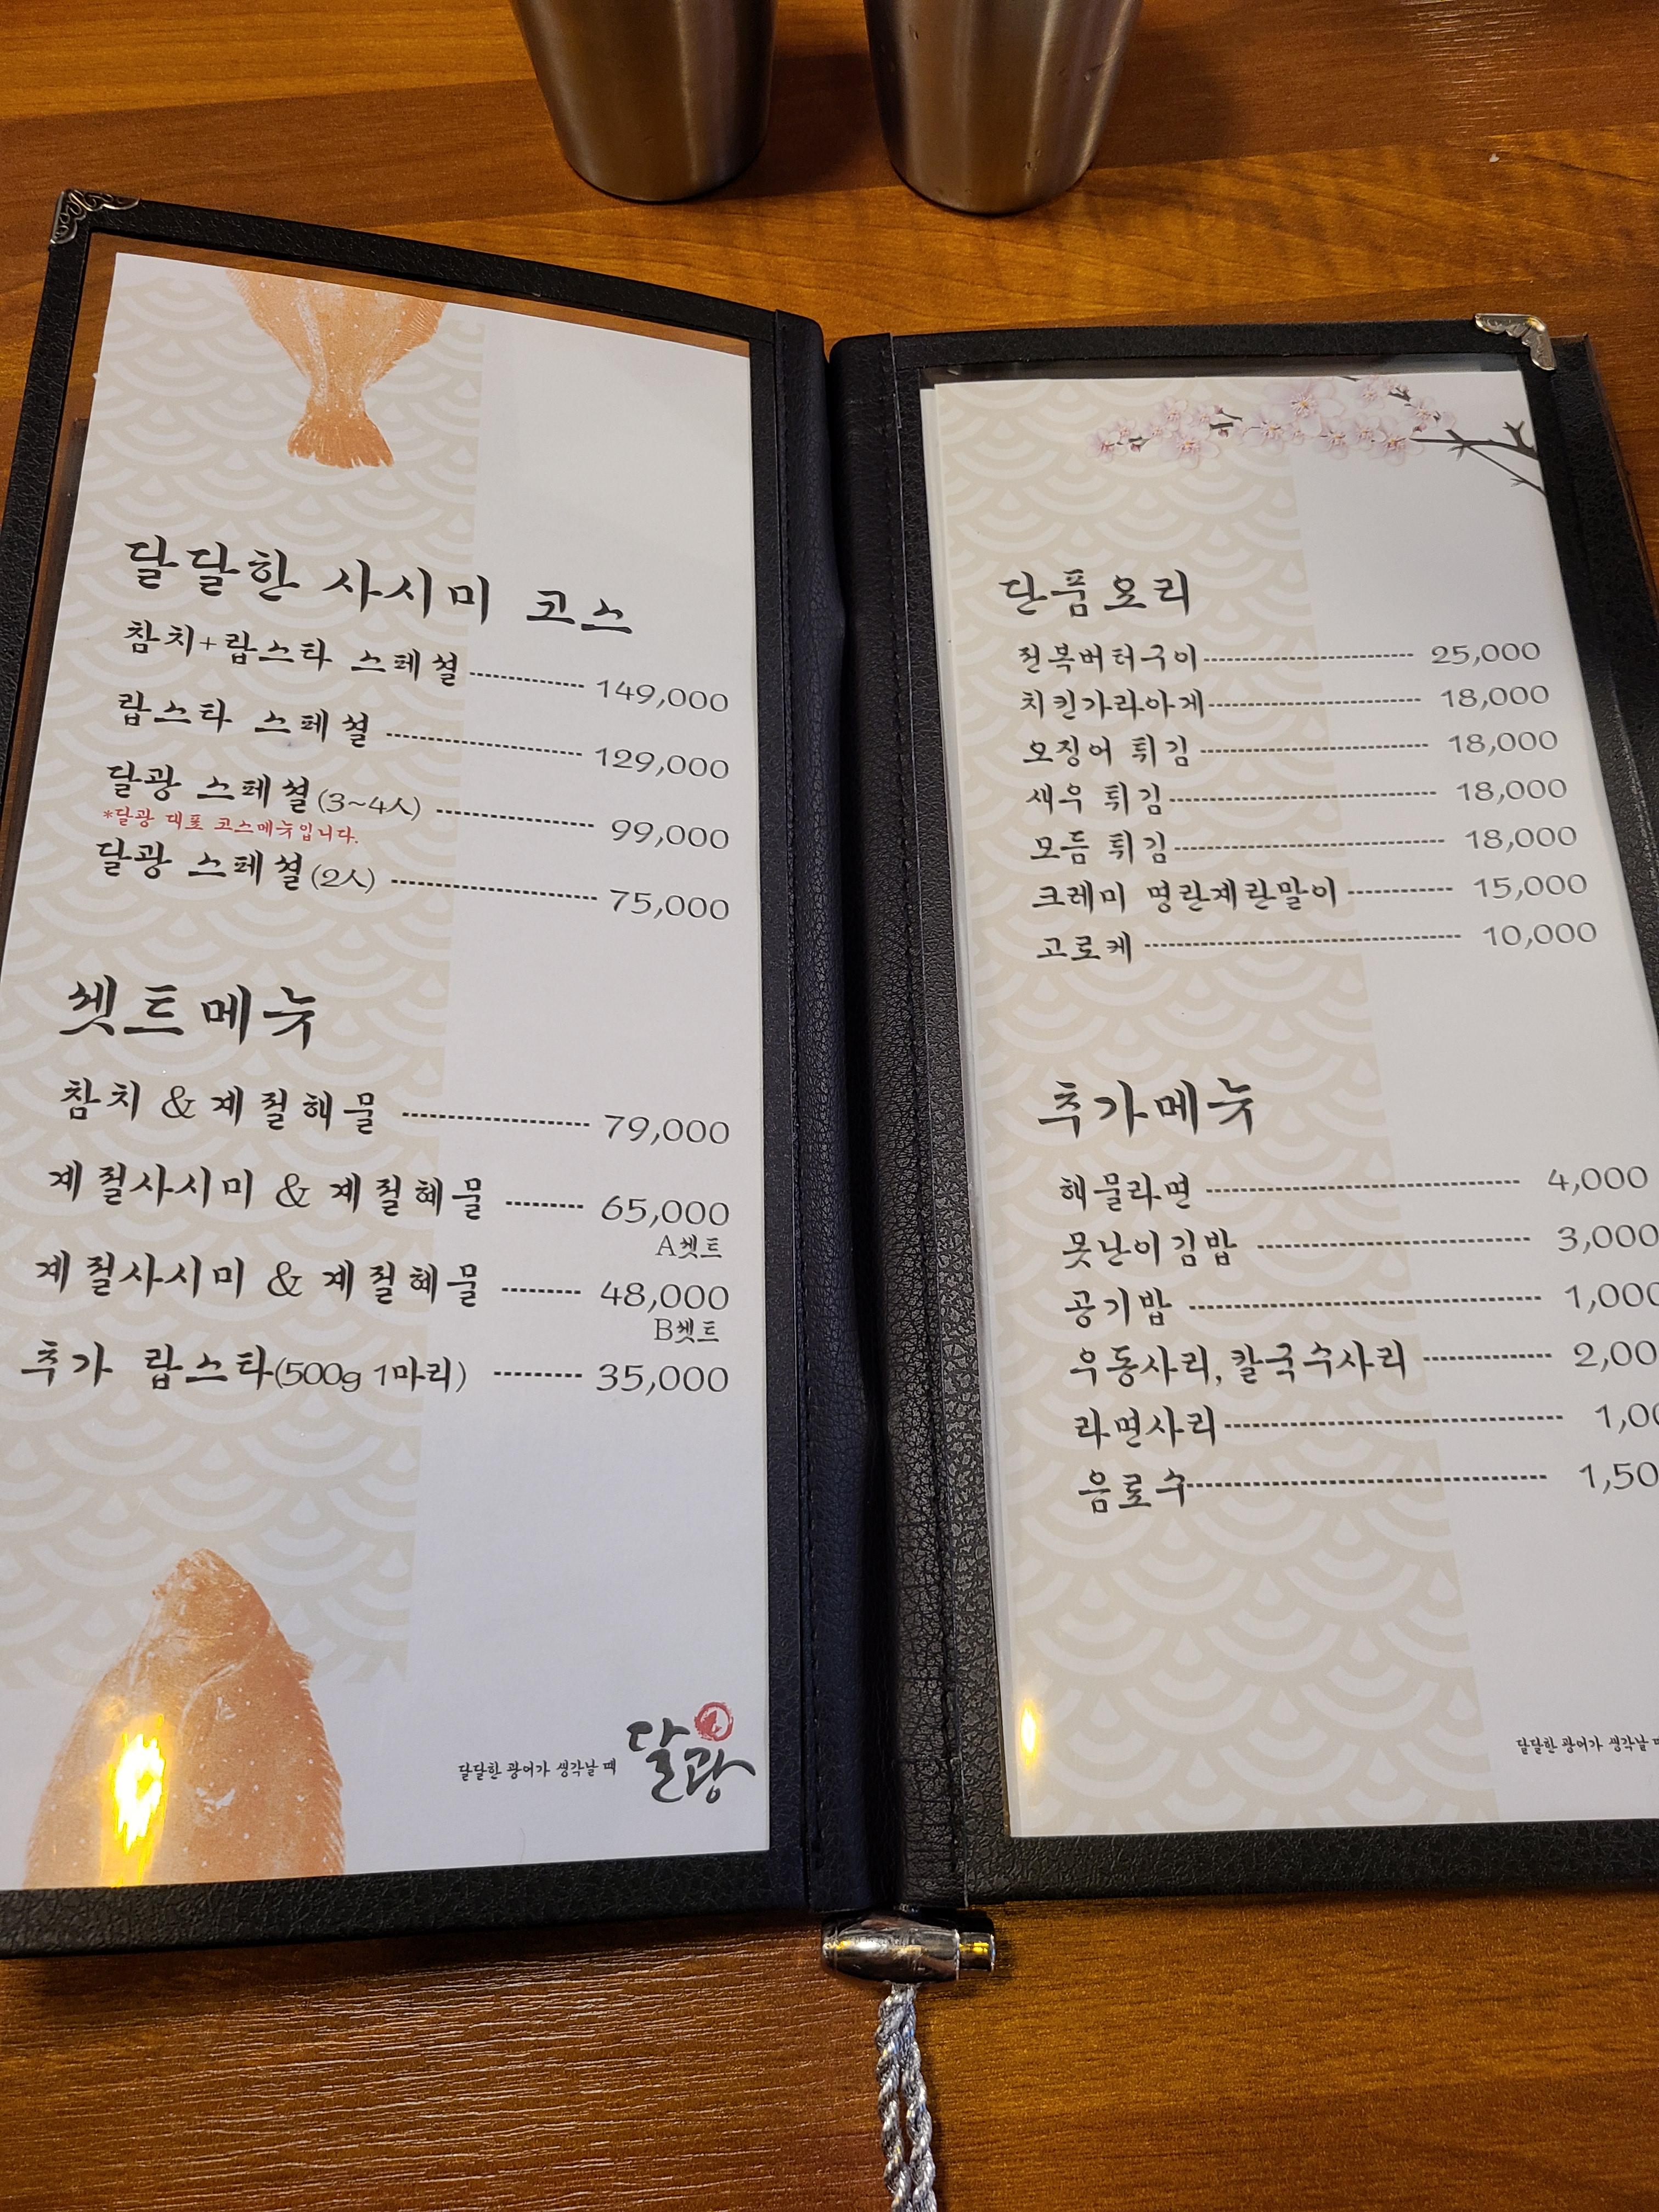 달달한 사시미 코스
참치+랍스타 스페셜 149,000
랍스타 스페셜 129,000
달광 스페셜(3~4人) 99,000
*달광 대표 코스메뉴입니다.
달광 스페셜(2人) 75,000
쎗트메뉴
참치 & 계절해물 79,000
계절사시미 & 계절혜물 65,000
A쎗트
계절사시미 & 계절혜물 48,000
B쎗트
추가 랍스타(500g 1마리) 35,000
달달한 광어가 생각날 때
달광
단품요리
전복버터구이 25,000
치킨가라아게 18,000
오징어 튀김 18,000
새우 튀김 18,000
모듬 튀김 18,000
크레미 명란계란말이 15,000
고로케 10,000
추가메뉴
해물라면 4,000
못난이김밥 3,000
공기밥 1,000
우동사리, 칼국수사리 2,00
라면사리 1,00
음료수 1,50
달달한 광어가 생각날